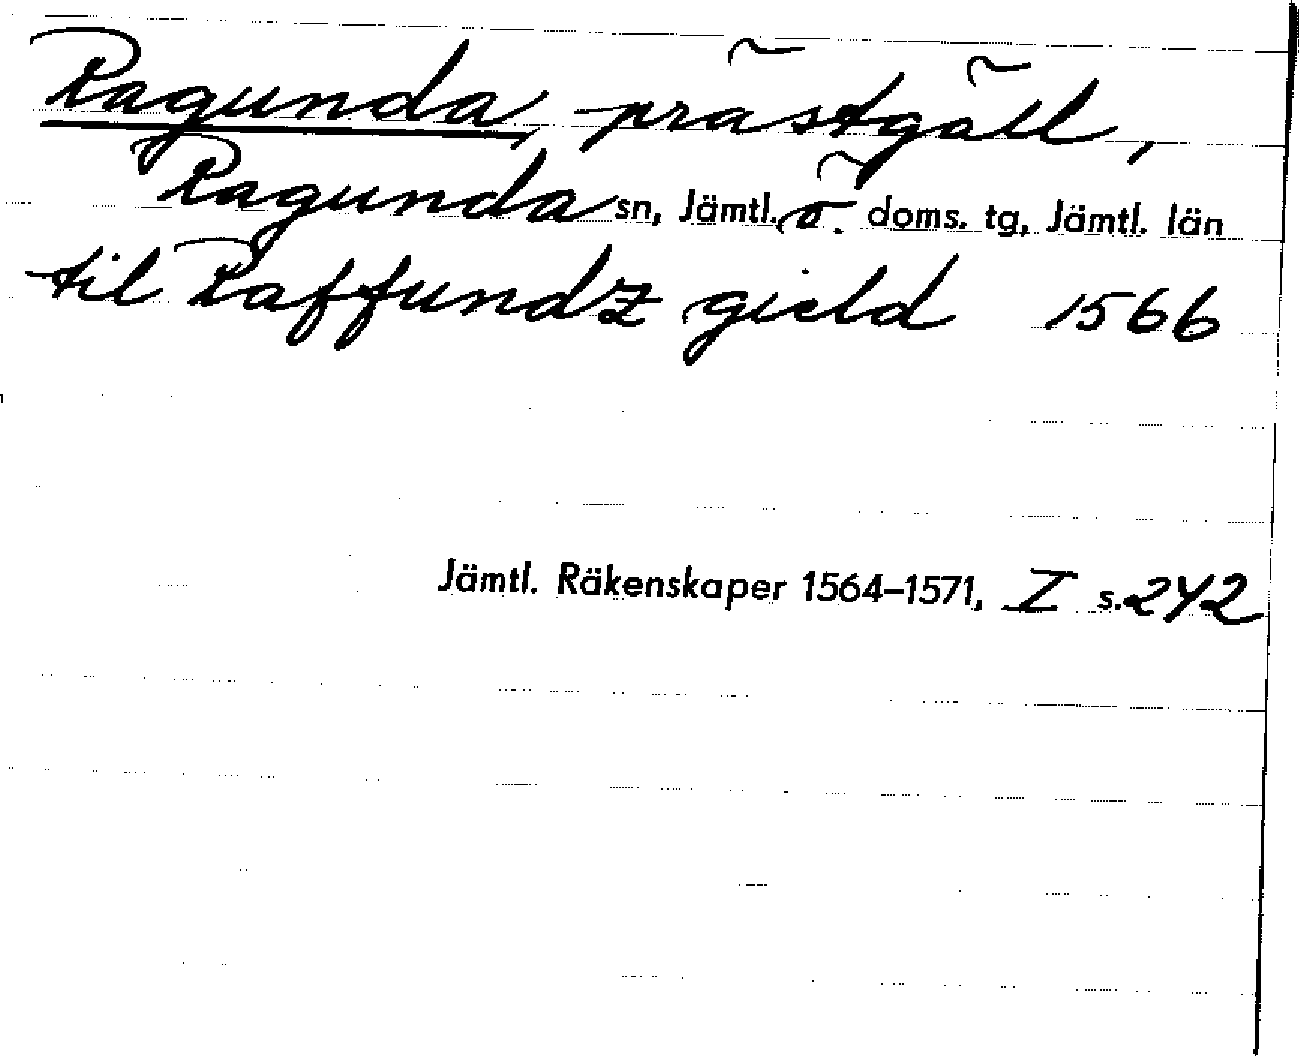 Ragunda, prästgäll,
Ragunda sn, Jämtl. ö. doms. tg, Jämtl. län
til Raffundz gield 1566
Jämtl. Räkenskaper 1564–1571, I s. 242